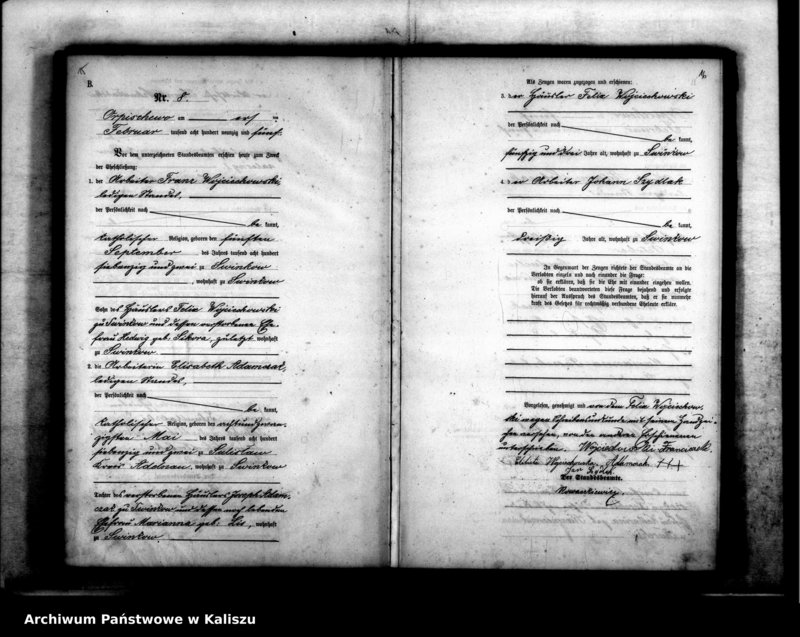 B.
Nr. 8.
Orpischewo am ers ten
Februar tausend acht hundert neunzig und fünf.
Vor dem unterzeichneten Standesbeamten erschien heute zum Zweck
der Eheschließung:
1. der Arbeiter Franz Wojciechowski,
ledigen Standes,
der Persönlichkeit nach
be kannt,
katholischer Religion, geboren den fünften
September des Jahres tausend acht hundert
siebenzig und zwei zu Swinkow
, wohnhaft zu Swinkow
Sohn des Häuslers Felix Wojciechowski
zu Swinkow und dessen verstorbener Ehe-
frau Hedwig geb. Sikora, zuletzt wohnhaft
zu Swinkow.
2. die Arbeiterin Elisabeth Adamczak,
ledigen Standes,
der Persönlichkeit nach
be kannt,
katholischer Religion, geboren den achtundzwan-
zigsten Mai des Jahres tausend acht hundert
siebenzig und zwei zu
Kreis Adelnau, wohnhaft zu Swinkow
Tochter des verstorbenen Häuslers Joseph Adam-
czak zu Swinkow und dessen noch lebenden
Ehefrau Marianna geb. Lis, wohnhaft
zu Swinkow.
Als Zeugen waren zugezogen und erschienen:
3. der Häusler Felix Wojciechowski
der Persönlichkeit nach
be kannt,
fünfzig und drei Jahre alt, wohnhaft zu Swinkow
4. der Arbeiter Johann Szydlak
der Persönlichkeit nach
be kannt,
dreißig Jahre alt, wohnhaft zu Swinkow
In Gegenwart der Zeugen richtete der Standesbeamte an die
Verlobten einzeln und nach einander die Frage:
ob sie erklären, daß sie die Ehe mit einander eingehen wollen.
Die Verlobten beantworteten diese Frage bejahend und erfolgte
hierauf der Ausspruch des Standesbeamten, daß er sie nunmehr
kraft des Gesetzes für rechtmäßig verbundene Eheleute erkläre.
Vorgelesen, genehmigt und von dem Felix Wojciechow-
ski wegen Schreibunkunde mit seinem Handzei-
chen versehen, von den anderen Erschienenen
unterschrieben. Wojciechowski Franciszek
Elzbieta Wojciechowska Adamczak +++
Jan
Der Standesbeamte.
Nowankiewicz.
Archiwum Państwowe w Kaliszu